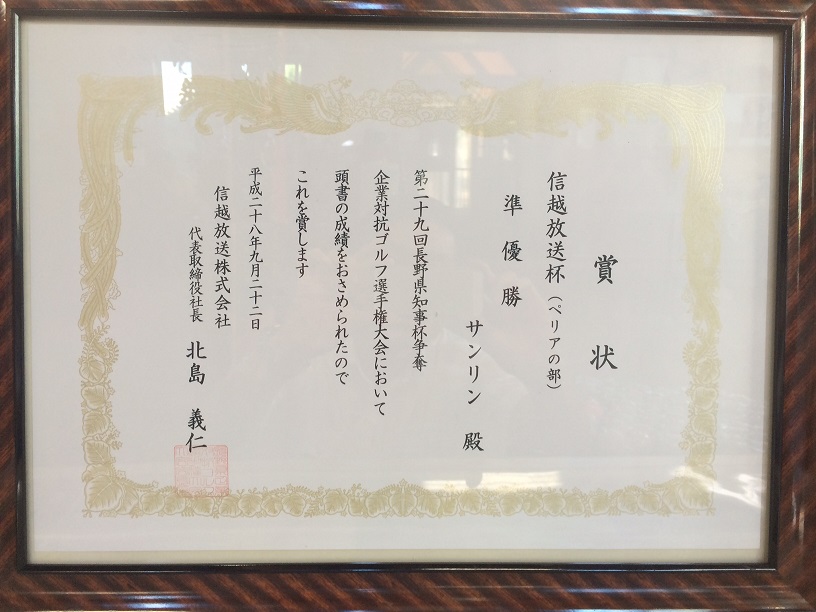 賞状
信越放送杯（ペリアの部）
準優勝
サンリン 殿
第二十九回長野県知事杯争奪
企業対抗ゴルフ選手権大会において
頭書の成績をおさめられたので
これを賞します
平成二十八年九月二十二日
信越放送株式会社
代表取締役社長 北島 義仁